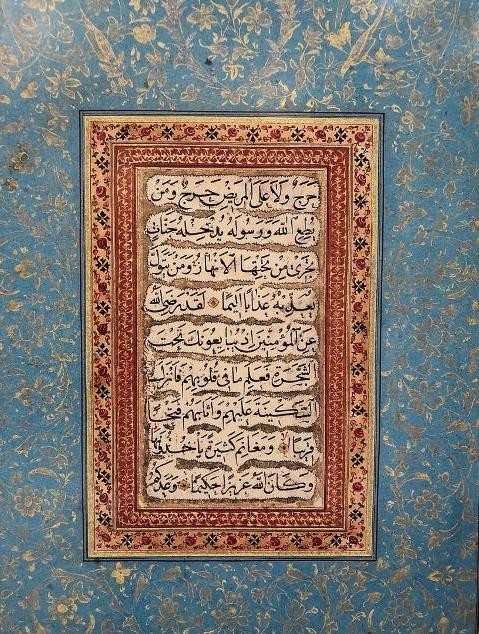 حَرَجٌ وَلَا عَلَى الْمَرِيضِ حَرَجٌ وَمَنْ
يُطِعِ اللهَ وَرَسُولَهُ يُدْخِلْهُ جَنَّاتٍ
تَجْرِي مِنْ تَحْتِهَا الْأَنْهَارُ وَمَنْ يَتَوَلَّ
يُعَذِّبْهُ عَذَابًا أَلِيمًا لَقَدْ رَضِيَ اللهُ
عَنِ الْمُؤْمِنِينَ إِذْ يُبَايِعُونَكَ تَحْتَ
الشَّجَرَةِ فَعَلِمَ مَا فِي قُلُوبِهِمْ فَأَنْزَلَ
السَّكِينَةَ عَلَيْهِمْ وَأَثَابَهُمْ فَتْحًا
قَرِيبًا وَمَغَانِمَ كَثِيرَةً يَأْخُذُونَهَا
وَكَانَ اللهُ عَزِيزًا حَكِيمًا وَعَدَكُمُ